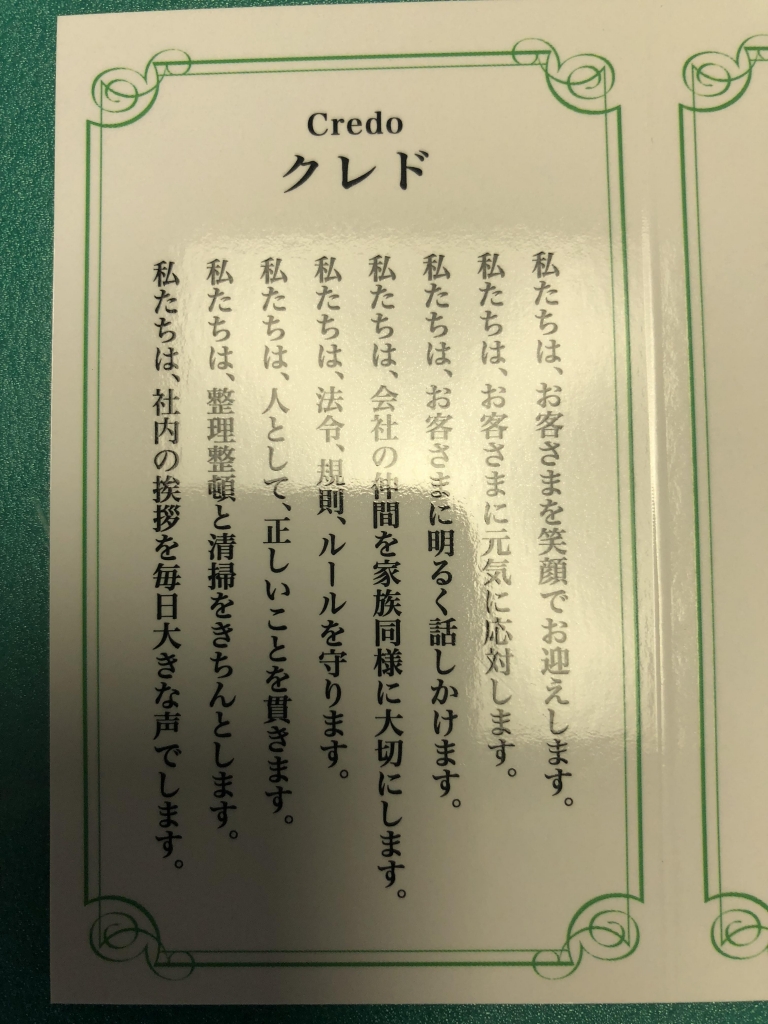 Credo
クレド
私たちは、お客さまを笑顔でお迎えします。
私たちは、お客さまに元気に応対します。
私たちは、お客さまに明るく話しかけます。
私たちは、会社の仲間を家族同様に大切にします。
私たちは、法令、規則、ルールを守ります。
私たちは、人として、正しいことを貫きます。
私たちは、整理整頓と清掃をきちんとします。
私たちは、社内の挨拶を毎日大きな声でします。